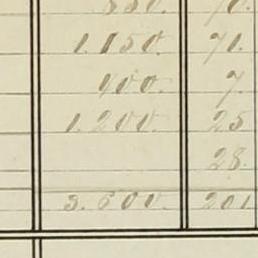 850. 70.
1.150. 71.
400. 7.
1.200. 25
28.
3.600. 201